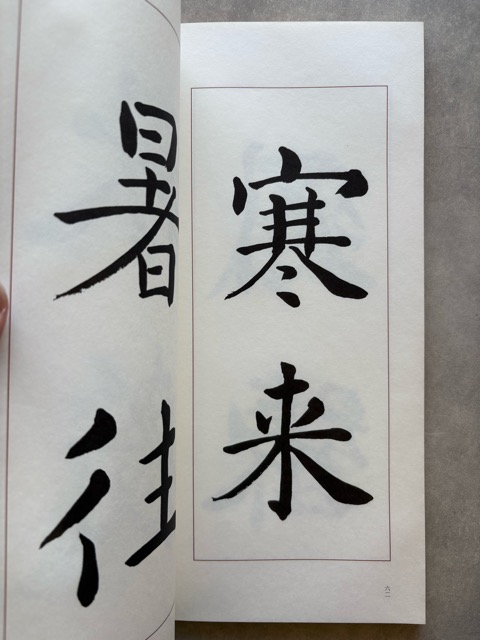 寒来
六二
暑往